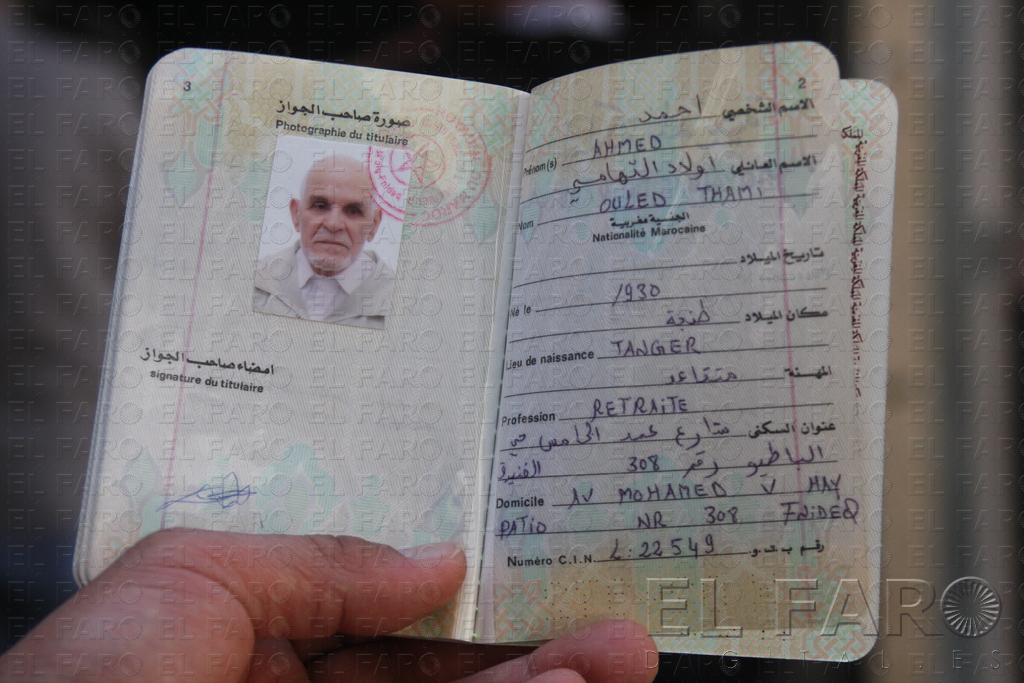 3
صورة صاحب الجواز
Photographie du titulaire
MAROC
امضاء صاحب الجواز
signature du titulaire
2
الاسم الشخصي احمد
Prénom(s) AHMED
الاسم العائلي اولاد التهامي
Nom OULED THAMI
الجنسية مغربية
Nationalité Marocaine
تاريخ الميلاد
Né le 1930
مكان الميلاد طنجة
Lieu de naissance TANGER
المهنة متقاعد
Profession RETRAITE
عنوان السكنى شارع محمد الخامس حي
الباطيو رقم 308 الفنيدق
Domicile AV MOHAMED V HAY
PATIO NR 308 FNIDEQ
Numéro C.I.N. L: 22549 رقم ب.ت.و.
EL FARO
DIGITALES